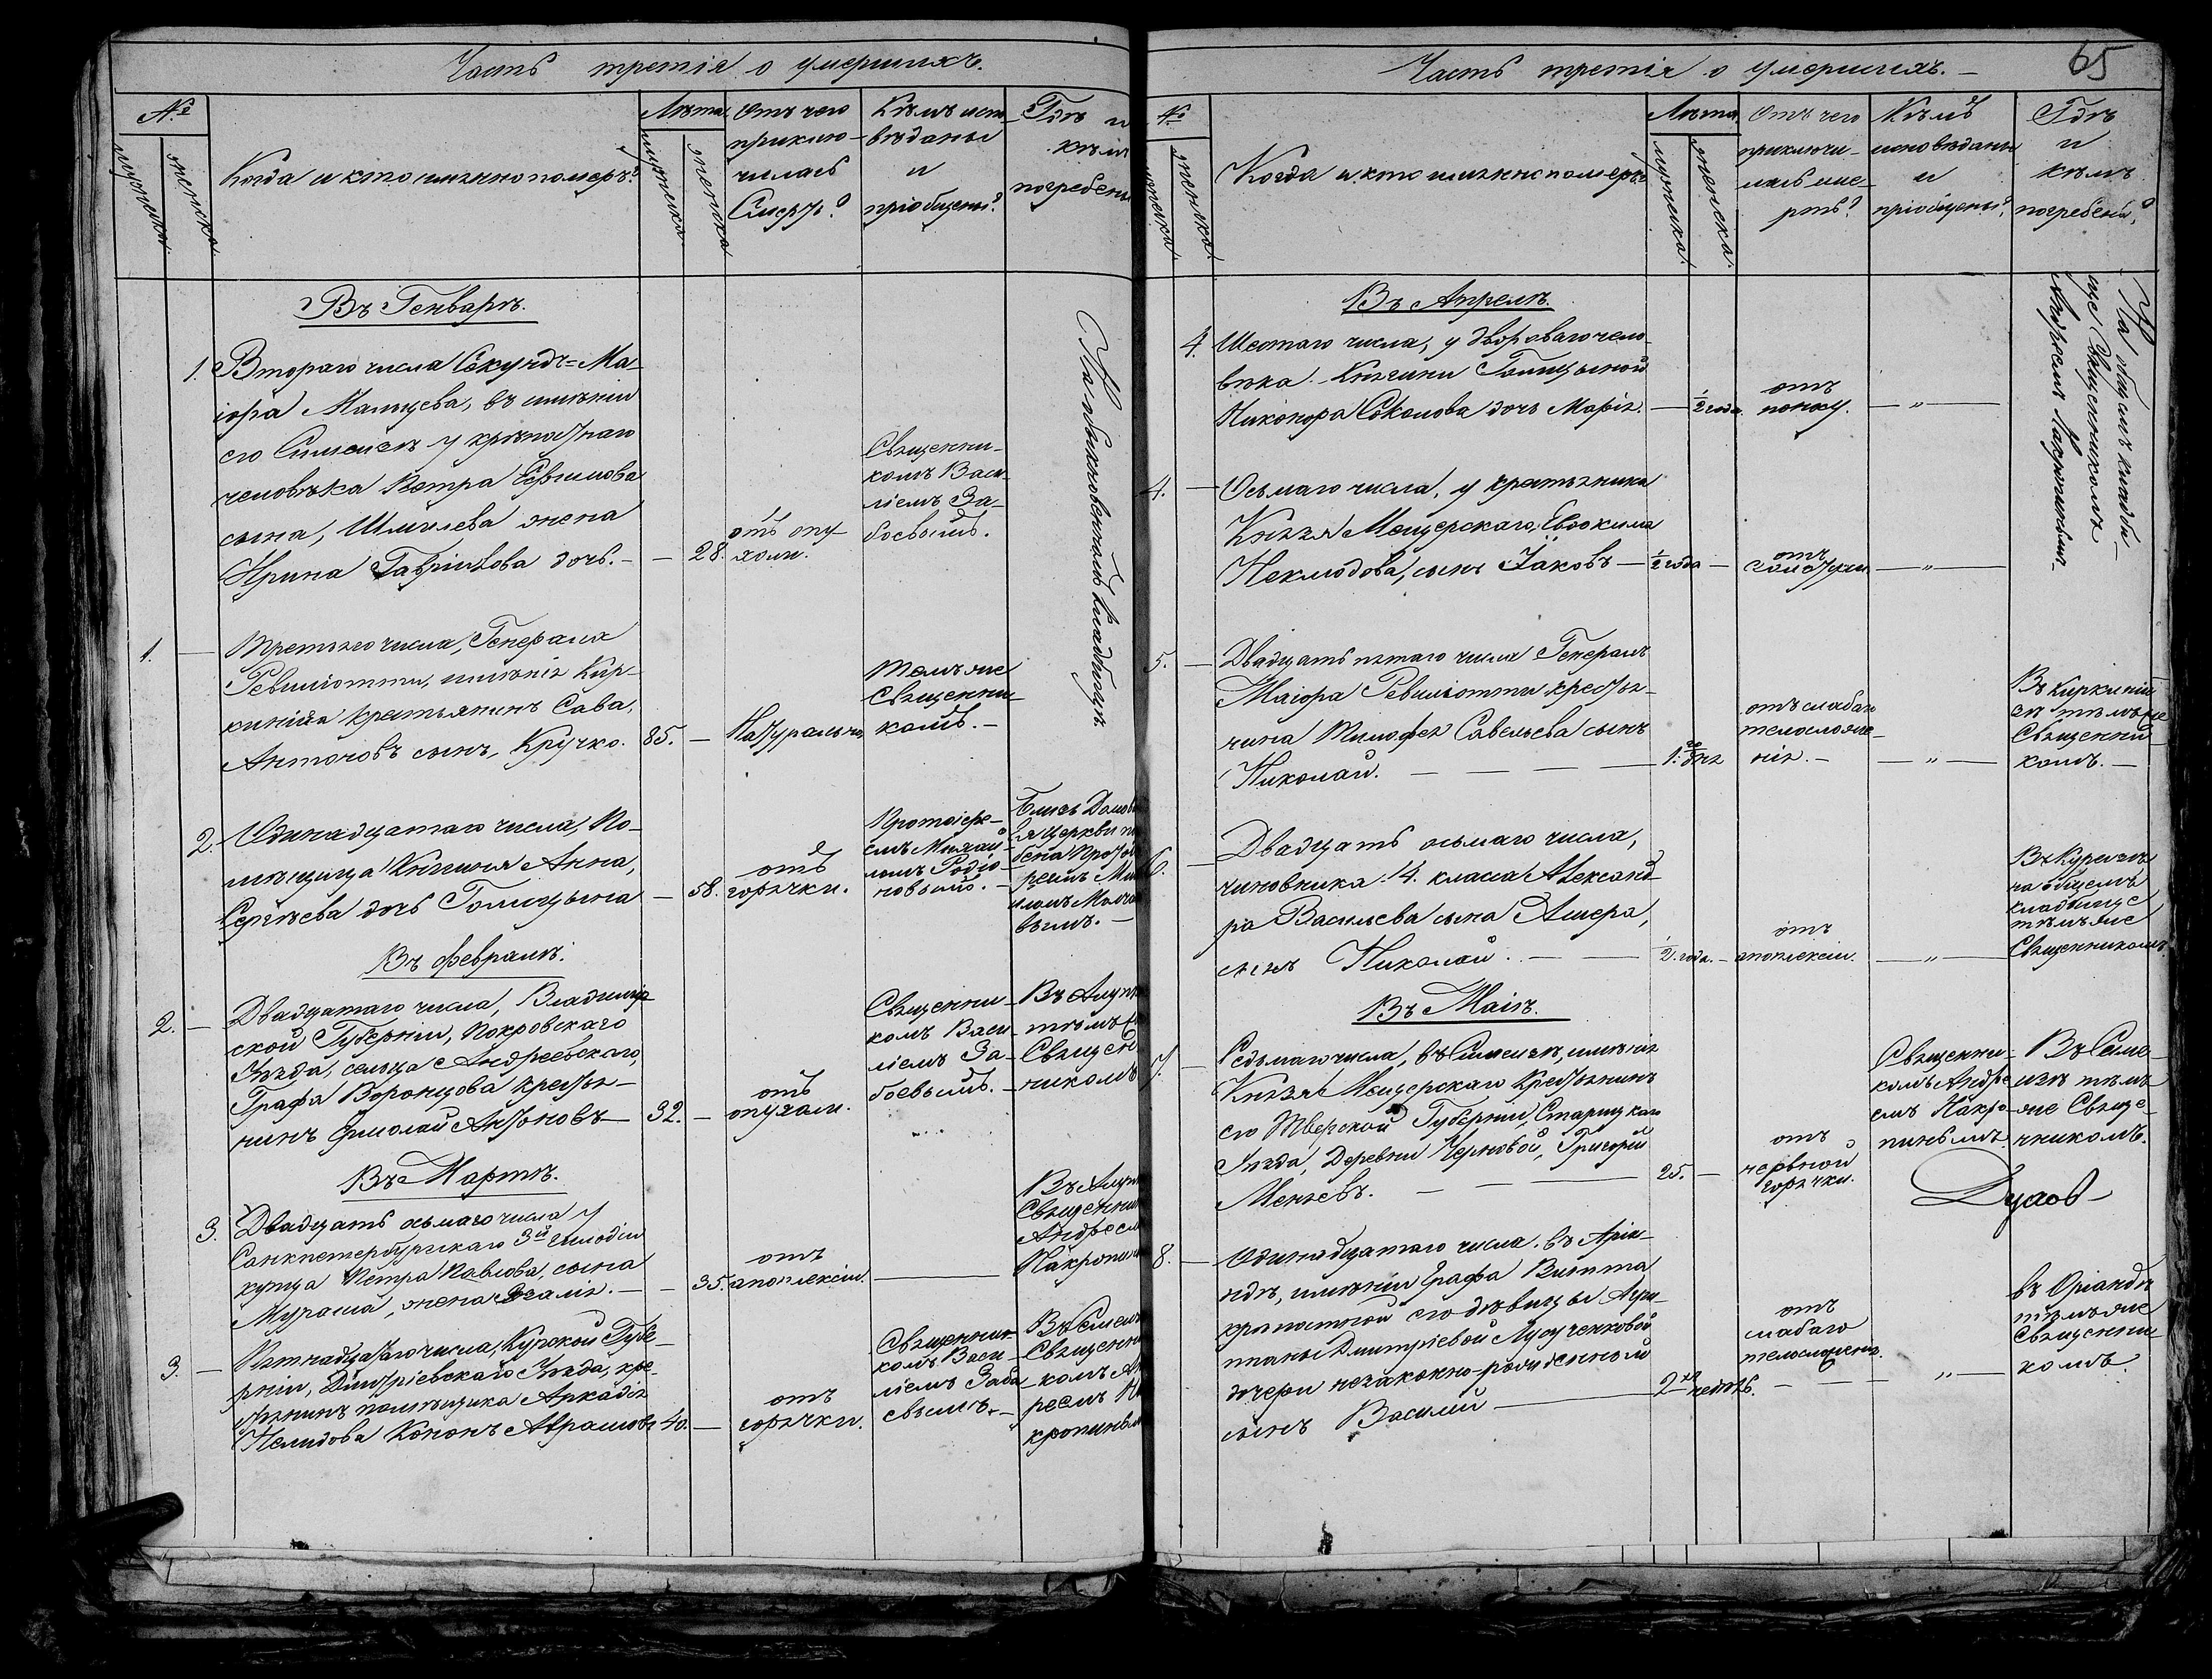 Часть третія о умершихъ.
№
мужеска
женска
Когда и кто именно померъ?
Лѣта
мужеска
женска
Отъ чего
приклю-
чилась
Смерть?
Кѣмъ испо-
вѣданы
и
пріобщены?
Гдѣ и
кѣмъ
погребены
Въ Генварѣ.
1. Втораго числа Секундъ=Ма-
іора Мальцева, въ имѣніи
его Симеисѣ у крѣпостнаго
человѣка Петра Ефимова
сына, Шмилева жена
Ирина Гавріилова дочь. —
— 28.
отъ опу-
холи.
Священни-
комъ Васи-
ліемъ За-
боевымъ.
На обыкновенномъ кладбищѣ.
1. — Третьяго числа, Генерала
Ревиліотти, имѣнія Кур-
киніиа крестьянинъ Сава,
Антоновъ сынъ, Кручко.
85. —
Натурально
Тѣмъ же
Священни-
комъ. —
2. Одинадцатаго числа, По-
мѣщица Княгиня Анна,
Сергѣева дочь Голицына
— 58.
отъ
горячки.
Протоіере-
емъ Михаи-
ломъ Родіо-
новымъ. —
Близь Домов
ія церкви по
бена Протоіе
реемъ Ми
иломъ
вымъ. —
Въ Февралѣ.
2. — Двадцатаго числа, Владимір-
ской Губерніи, Покровскаго
Уѣзда, сельца Андреевскаго,
Графа Воронцова кресть-
нинъ Ермолай Антоновъ —
32. —
отъ
опухоли.
Священни-
комъ Васи-
ліемъ За-
боевымъ. —
Въ Алуп
тѣмъ
Священ
никомъ
Въ Мартѣ.
3. Двадцать осьмаго числа у
Санкпетербургскаго 3й гильдіи
купца Петра Павлова, сына
Мураша, жена
— 35.
отъ
апоплексіи.
—
Въ Алуп
Священни
Андреем
Накропин
3. — Пятнадцатаго числа, Курской Губе-
рніи, Дмитріевскаго Уѣзда, кре-
стьянинъ помѣщика Аркадія
Нелидова Кононъ Аврамовъ
40. —
отъ
горячки.
Священни-
комъ Васи-
ліемъ Забо-
евымъ. —
Въ Симеи
Священни
комъ Ан
реемъ На
кропины
65
Часть третія о умершихъ. —
№
мужеска
женска.
Когда и кто именно померъ?
Лѣта
мужеска.
женска.
Отъ чего
приключи-
лась сме-
рть?
Кѣмъ
исповѣданы
и
пріобщены?
Гдѣ
и
кѣмъ
погребены?
Въ Апрелѣ.
4. Шестаго числа, у двороваго чело-
вѣка Княгини Голицыной
Никонора Соколова дочь Марія.
— ½ года.
отъ
поносу.
— „ —
На общемъ кладби-
ще Священникомъ
Андреемъ Накропинымъ.
4. — Осьмаго числа, у крестьянина
Князя Мещерскаго, Евдокима
Неклюдова, сынъ Іаковъ —
½ года —
отъ
золотухи
— „ —
5. — Двадцать пятаго числа Генералъ
Маіора Ревиліотти крестья-
нина Тимофея Савельева сынъ
Николай. — — — —
1. дня
отъ слабаго
телосложе-
нія. —
— „ —
Въ Куркиніи-
зѣ тѣмъ же
Священни-
комъ. —
6. — Двадцать осьмаго числа,
чиновника 14. класса Александ-
ра Васильева сына Ашера,
сынъ Николай. — —
½. года. —
отъ
апоплексіи.
— „ —
Въ Курезѣ
на общемъ
кладбище
тѣмъ же
Священникомъ.
Въ Маіѣ.
7. — Седьмаго числа, въ Симеизѣ, имѣнія
Князя Мещерскаго Крестьянинъ
его Тверской Губерніи, Старицкаго
Уѣзда, Деревни Черновой, Григорій
Меньевъ. — — —
25. —
отъ
нервной
горячки.
Священни-
комъ Андре-
емъ Накро-
пинымъ.
Въ Симе-
изѣ тѣмъ
же Свяще-
нникомъ.
8. — Одинадцатаго числа. въ Оріа-
ндѣ, имѣніи Графа Витта
крепостной его дѣвицы Агри-
пины Дмитріевой
дочери незаконно-рожденной
сынъ Василій —
2хъ недѣль. —
отъ
слабаго
телосложенія.
— „ —
въ Оріандѣ
тѣмъ же
Священни-
комъ.